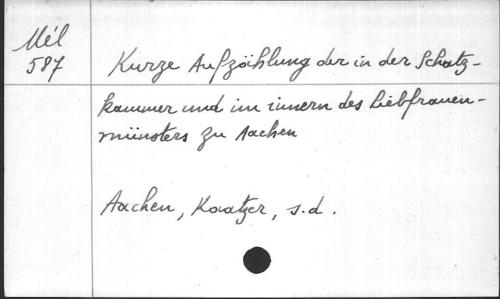 Mél
587
Kurze Aufzählung der in der Schatz-
kammer und im innern des Liebfrauen-
münsters zu Aachen
Aachen, Kaatzer, s.d.